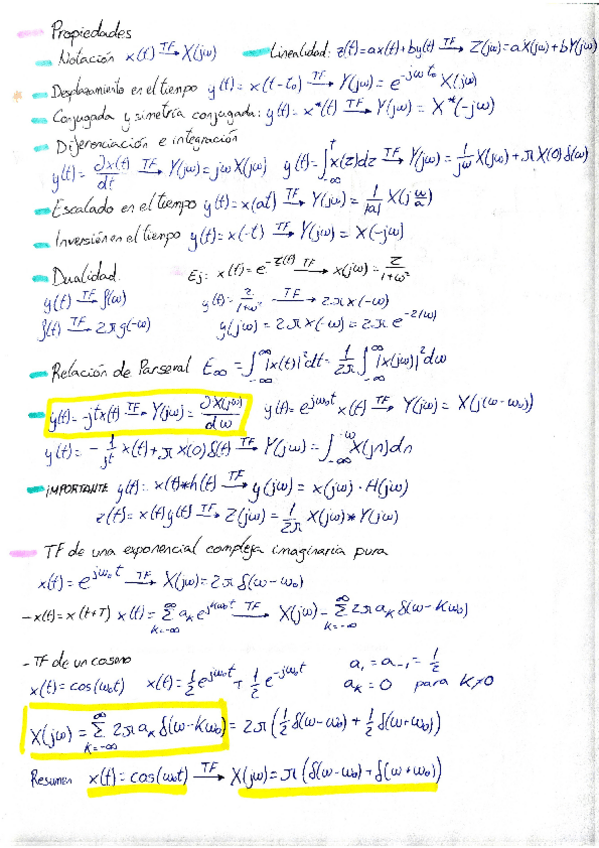 Propiedades
Notación x(t) TF→ X(jω)
Linealidad: z(t)=ax(t)+by(t) TF→ Z(jω)=aX(jω)+bY(jω)
Desplazamiento en el tiempo y(t)=x(t-t₀) TF→ Y(jω)=e^{-jωt₀} X(jω)
Conjugada y simetría conjugada: y(t)=x*(t) TF→ Y(jω)=X*(-jω)
Diferenciación e integración
y(t)=∂x(t)/dt TF→ Y(jω)=jωX(jω) y(t)=∫_{-∞}^{t} x(z)dz TF→ Y(jω)=1/jω X(jω)+πX(0)δ(ω)
Escalado en el tiempo y(t)=x(at) TF→ Y(jω)=1/|a| X(j ω/a)
Inversión en el tiempo y(t)=x(-t) TF→ Y(jω)=X(-jω)
Dualidad. Ej: x(t)=e^{-|t|} TF→ X(jω)=2/(1+ω²)
y(t) TF→ f(ω) y(t)=2/(1+ω²) TF→ 2πx(-ω)
f(t) TF→ 2πg(-ω) y(jω)=2πx(-ω)=2πe^{-2|ω|}
Relación de Parseval E∞=∫_{-∞}^{∞}|x(t)|²dt=1/2π ∫_{-∞}^{∞}|x(jω)|²dω
y(t)=-jtx(t) TF→ Y(jω)=∂X(jω)/dω y(t)=e^{jω₀t} x(t) TF→ Y(jω)=X(j(ω-ω₀))
y(t)=-1/jt x(t)+πx(0)δ(t) TF→ Y(jω)=∫_{-∞}^{ω} X(jη)dη
IMPORTANTE y(t)=x(t)*h(t) TF→ y(jω)=x(jω)·H(jω)
z(t)=x(t)y(t) TF→ Z(jω)=1/2π X(jω)*Y(jω)
TF de una exponencial compleja imaginaria pura
x(t)=e^{jω₀t} TF→ X(jω)=2πδ(ω-ω₀)
-x(t)=x(t+T) x(t)=∑_{K=-∞}^{∞} a_K e^{jKω₀t} TF→ X(jω)=∑_{K=-∞}^{∞} 2πa_K δ(ω-Kω₀)
-TF de un coseno
x(t)=cos(ω₀t) x(t)=1/2 e^{jω₀t}+1/2 e^{-jω₀t} a₁=a₋₁=1/2
a_K=0 para K≠0
X(jω)=∑_{K=-∞}^{∞} 2πa_K δ(ω-Kω₀)=2π(1/2 δ(ω-ω₀)+1/2 δ(ω+ω₀))
Resumen x(t)=cos(ω₀t) TF→ X(jω)=π(δ(ω-ω₀)+δ(ω+ω₀))